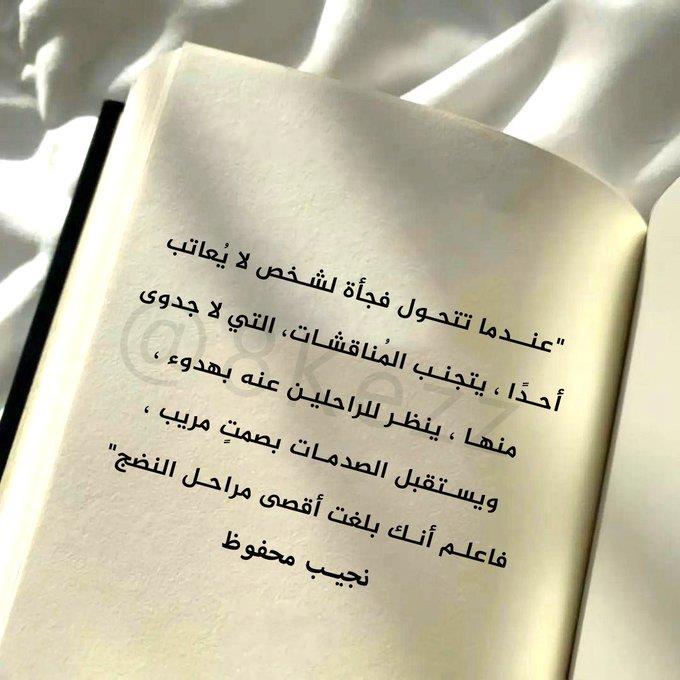 "عندما تتحول فجأة لشخص لا يُعاتب
أحدًا ، يتجنب المُناقشات، التي لا جدوى
منها ، ينظر للراحلين عنه بهدوء ،
ويستقبل الصدمات بصمتٍ مريب ،
فاعلم أنك بلغت أقصى مراحل النضج"
نجيب محفوظ
@8kezz